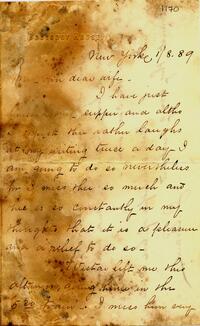 1170
New York 1/8.89
dear wife -
I have just
supper and altho
I expect thee rather laughs
at my writing twice a day - I
am going to do so nevertheless
for I miss thee so much and
thee is so constantly in my
thoughts that it is a pleasure
and a relief to do so -
left me this
afternoon, going home in the
5 train & I miss him very